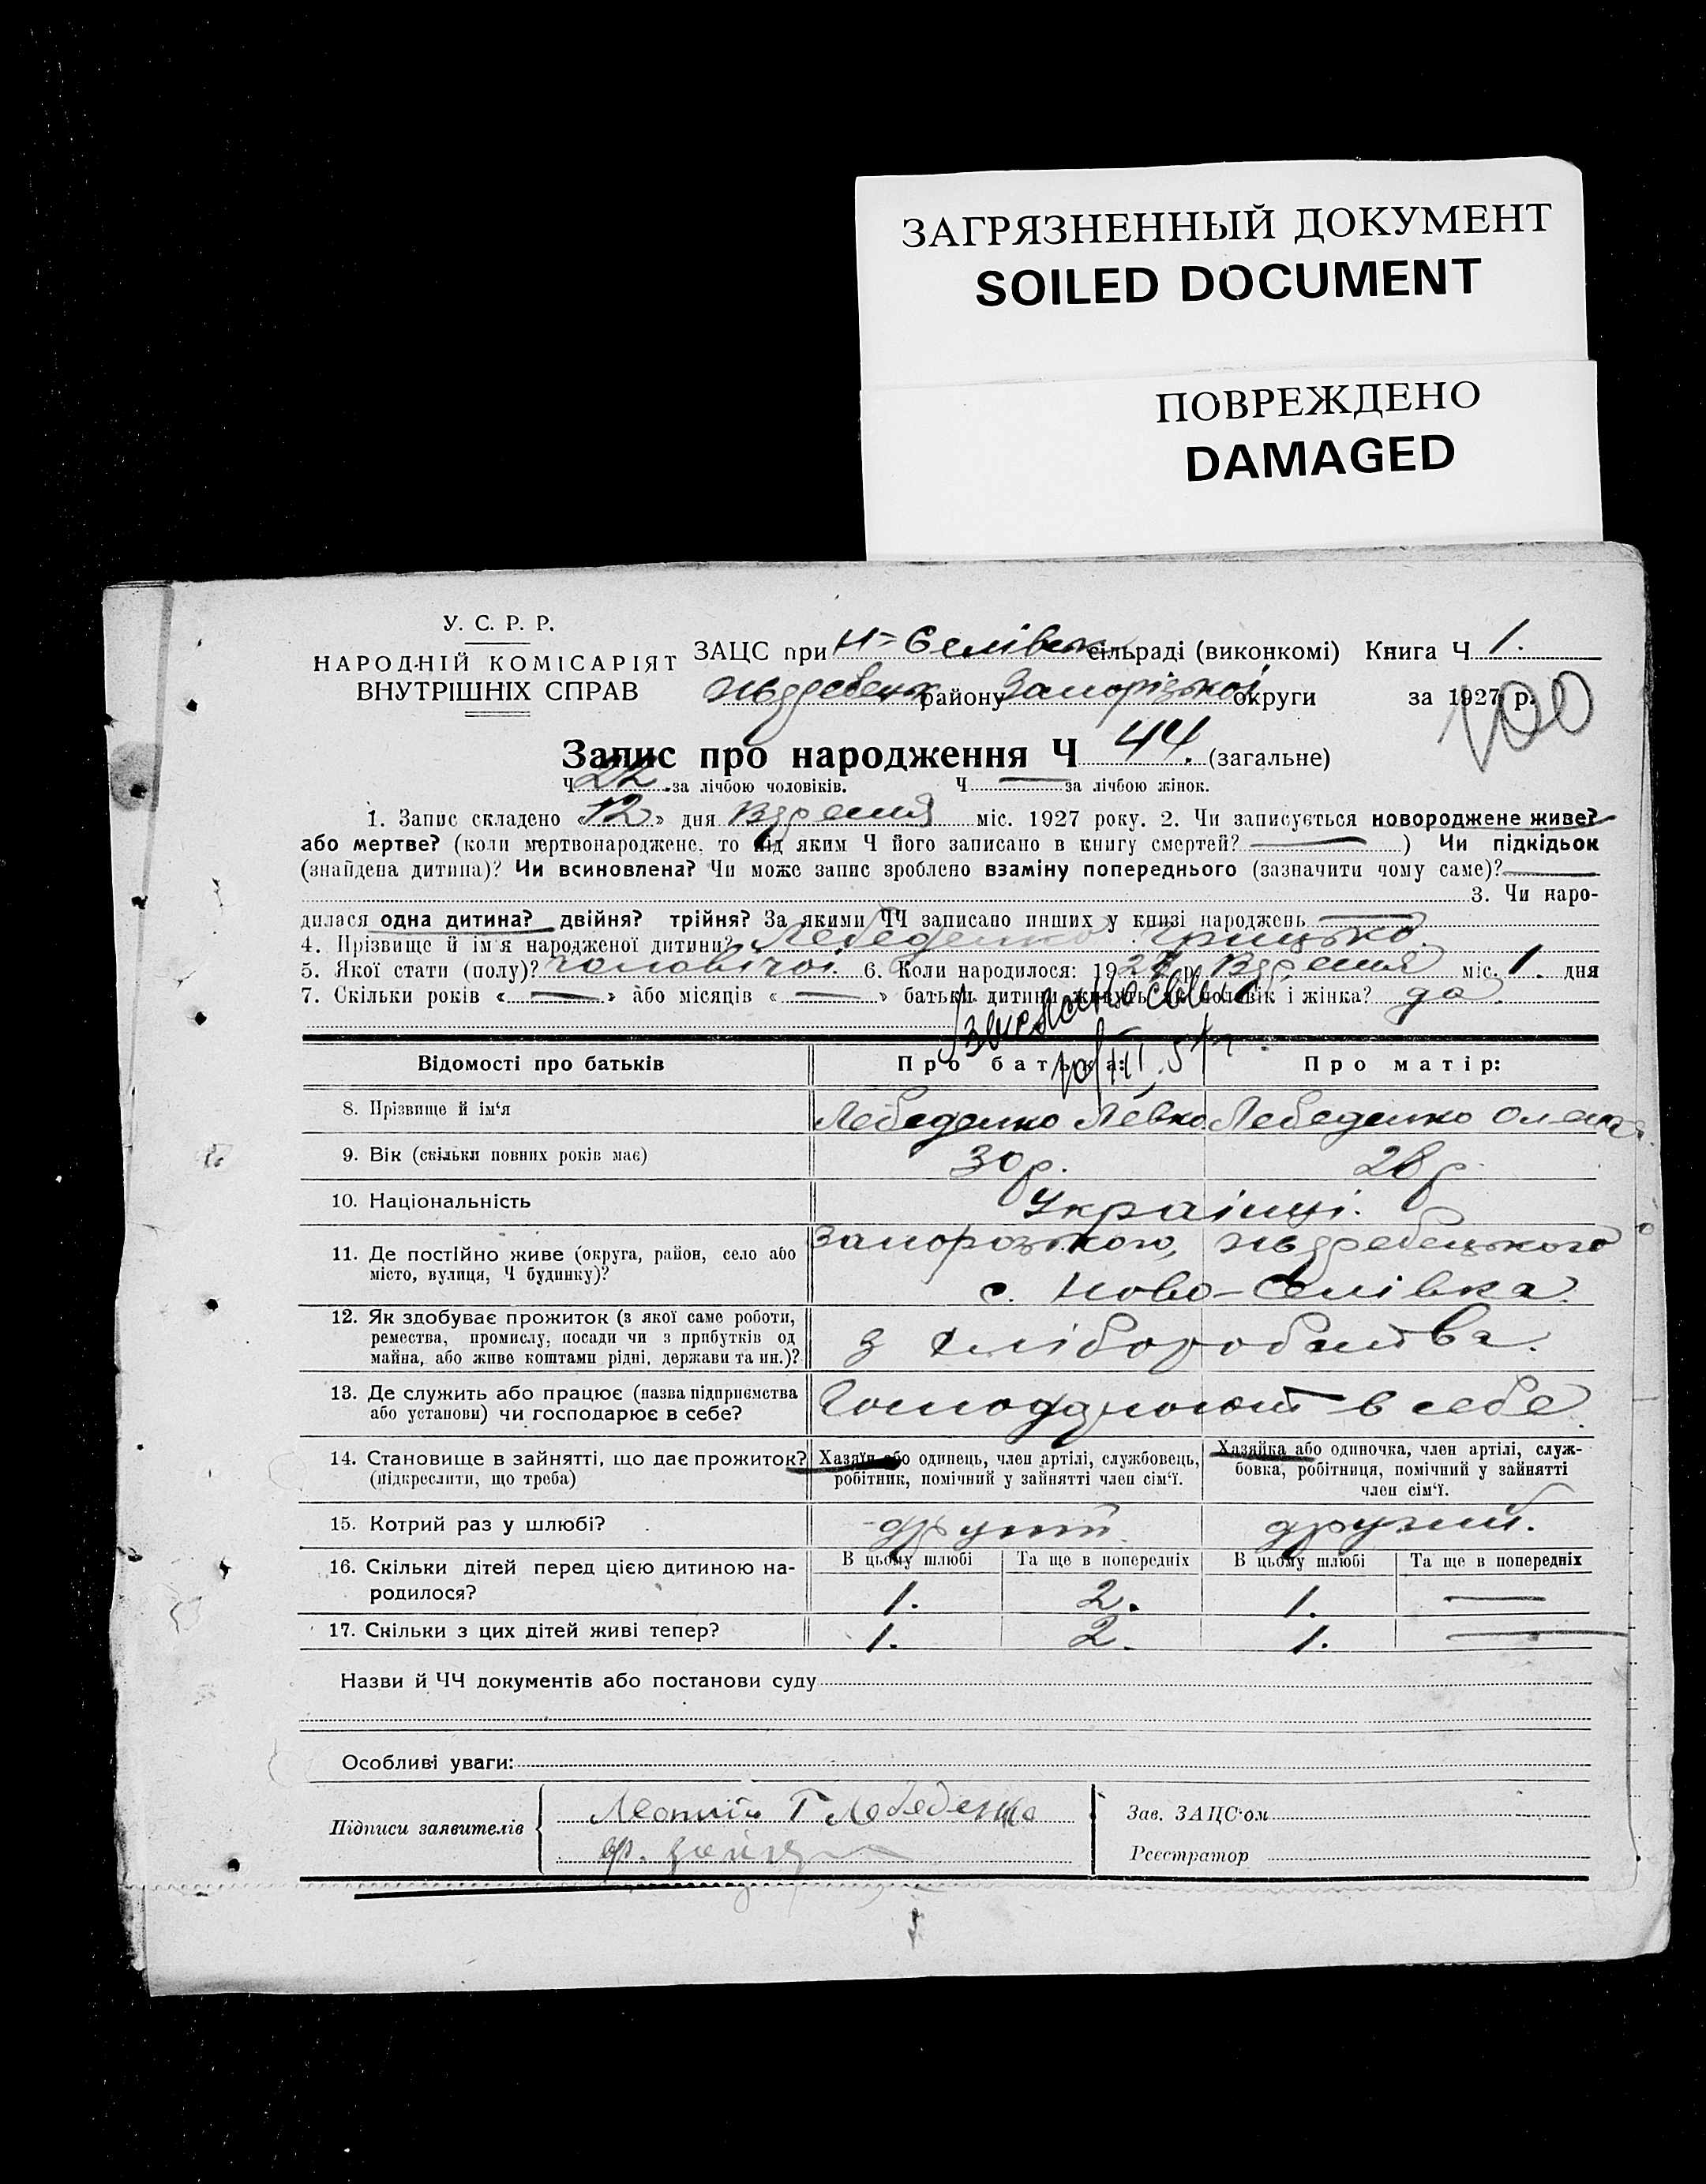 ЗАГРЯЗНЕННЫЙ ДОКУМЕНТ
SOILED DOCUMENT
ПОВРЕЖДЕНО
DAMAGED
У. С. Р. Р.
НАРОДНІЙ КОМІСАРІЯТ
ВНУТРІШНІХ СПРАВ
ЗАЦС при сільраді (виконкомі) Книга Ч 1.
району Запорізької округи за 1927 р.
100
Запис про народження Ч 44. (загальне)
Ч 22 за лічбою чоловіків. Ч — за лічбою жінок.
1. Запис складено «12» дня Вересня міс. 1927 року. 2. Чи записується новороджене живе?
або мертве? (коли мертвонароджене, то під яким Ч його записано в книгу смертей? — ) Чи підкідьок
(знайдена дитина)? Чи всиновлена? Чи може запис зроблено взаміну попереднього (зазначити чому саме)? —
3. Чи наро-
дилася одна дитина? двійня? трійня? За якими ЧЧ записано инших у книзі народжень —
4. Прізвище й ім'я народженої дитини? Лебеденко Грицько.
5. Якої стати (полу)? чоловічої. 6. Коли народилося: 1927 р. Вересня міс. 1. дня
7. Скільки років «—» або місяців «—» батьки дитини живуть як чоловік і жінка? да
Відомості про батьків Про батька: Про матір:
8. Прізвище й ім'я Лебеденко Левко Лебеденко Олена
9. Вік (скільки повних років має) 30 р. 28 р.
10. Національність Українці.
11. Де постійно живе (округа, район, село або
місто, вулиця, Ч будинку)?
с. Ново-Селівка
12. Як здобуває прожиток (з якої саме роботи,
ремества, промислу, посади чи з прибутків од
майна, або живе коштами рідні, держави та ин.)?
з хліборобства.
13. Де служить або працює (назва підприємства
або установи) чи господарює в себе?
Господарюют в себе
14. Становище в зайнятті, що дає прожиток?
(підкреслити, що треба)
Хазяїн або одинець, член артілі, службовець,
робітник, помічний у зайнятті член сім'ї.
Хазяйка або одиночка, член артілі, служ-
бовка, робітниця, помічний у зайнятті
член сім'ї.
15. Котрий раз у шлюбі? другий. другий.
16. Скільки дітей перед цією дитиною на-
родилося?
В цьому шлюбі Та ще в попередніх В цьому шлюбі Та ще в попередніх
1. 2. 1. —
17. Скільки з цих дітей живі тепер? 1. 2. 1. —
Назви й ЧЧ документів або постанови суду
Особливі уваги:
Підписи заявителів
Лебеденко
Зав. ЗАЦС-ом
Реєстратор